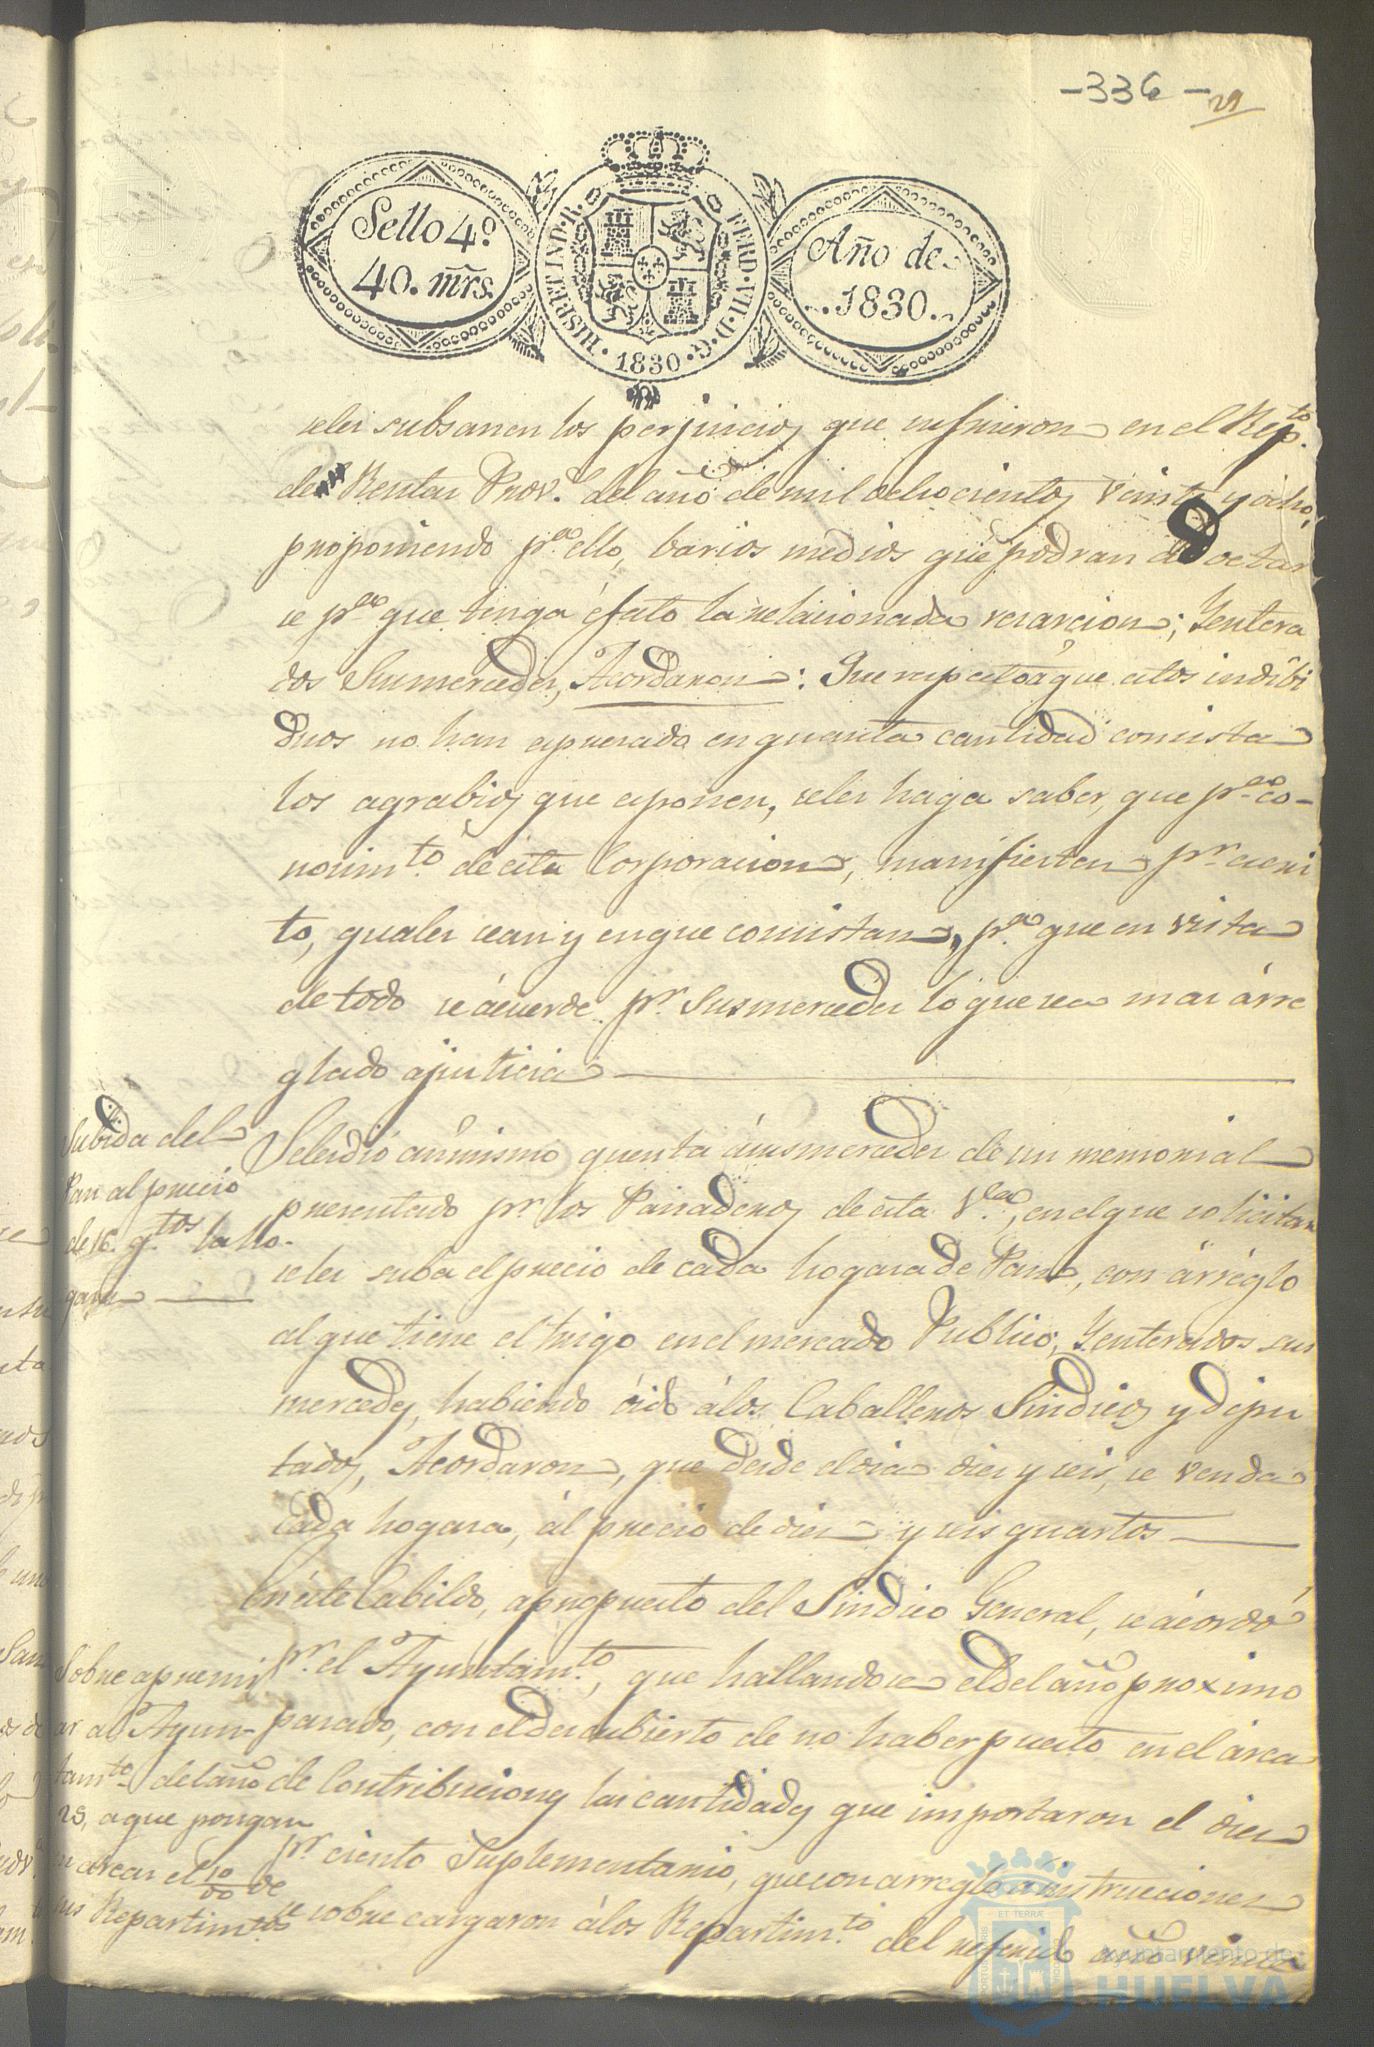 -336-
29
Sello 4º
40. mrs.
HISP. ET IND. R. FERD. VII. D. G. 1830
Año de
1830
seles subsanen los perjuicios que sufrieron en el Rep.to
de Rentas Prov.s del año de mil ochocientos veinte y ocho,
proponiendo p.a ello, barios medios que podran adoctar
se p.a que tenga éfeto la relacionada reracion; Yentera
dos Susmercedes, Acordaron: Que respecto á que estos indibi
duos no han espresado en quanta cantidad consista
los agrabios que esponen, seles haga saber, que p.a co-
nocim.to de esta Corporacion, manifiesten p.r escri
to, quales sean y en que consistan, p.a que en vista
de todo se ácuerde p.r Susmercedes lo que sea mas árre
glado ajusticia
Subida del
Pan al precio
de 16 q.tos la ho-
gaza
Seledió asimismo quenta ásusmercedes de un memorial
presentado p.r los Panaderos de esta V.a, en el que solicitan
seles suba el precio de cada hogaza de Pan, con árréglo
al que tiene el trigo en el mercado Publico, Yenterados sus
mercedes, habiendo óido álos Caballeros Sindicos y dipu
tados, Acordaron, que desde el dia diez y seis, se venda
Cada hogaza, ál precio de diez y seis quartos
En éste Cabildo, apropuesto del Sindico General, se ácordó
p.r el Ayuntam.to, que hallandose el del año proximo
pasado, con el descubierto de no haber puesto en el árca
de Contribuciones las cantidades que importaron el diez
p.r ciento Suplementario, que con arreglo a instrucciones
se sobre cargaron álos Repartim.to del referido año veinte
Sobre apremi
ar al Ayun-
tam.to del año
29, a que pongan
en arcas el 10/00 de
sus Repartimtos
Ayuntamiento de
HUELVA